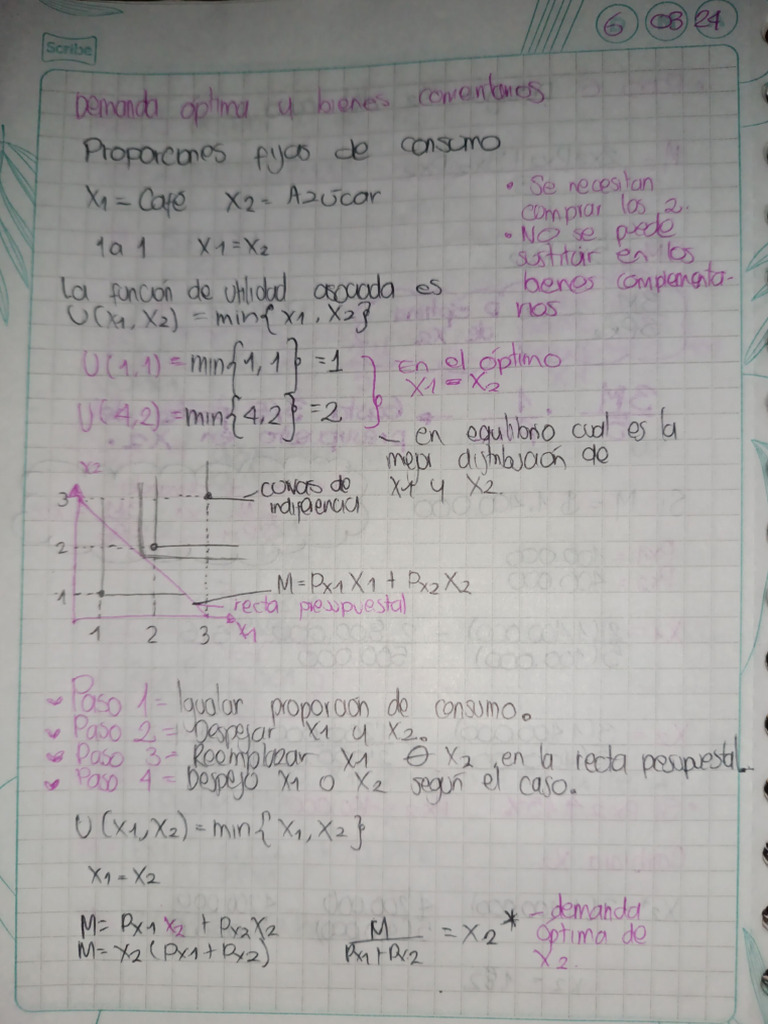 6 08 24
Scribe
Demanda óptima y bienes comentarios
Proporciones fijas de consumo
X1 = Café X2 = Azúcar
1 a 1 X1 = X2
• Se necesitan
comprar los 2.
• NO se puede
sustituir en los
bienes complementa-
rios
La función de utilidad asociada es
U(X1, X2) = min{X1, X2}
U(1,1) = min{1,1} = 1
U(4,2) = min{4,2} = 2
en el óptimo
X1 = X2
en equilibrio cual es la
mejor distribución de
X1 y X2.
X2
3
2
1
1 2 3 X1
curvas de
indiferencia
M = Px1 X1 + Px2 X2
recta presupuestal
Paso 1 = Igualar proporción de consumo.
Paso 2 = Despejar X1 y X2.
Paso 3 = Reemplazar X1 o X2 en la recta presupuestal
Paso 4 = Despejo X1 o X2 según el caso.
U(X1, X2) = min{X1, X2}
X1 = X2
M = Px1 X2 + Px2 X2
M = X2 (Px1 + Px2)
M / Px1 + Px2 = X2* - demanda
óptima de
X2